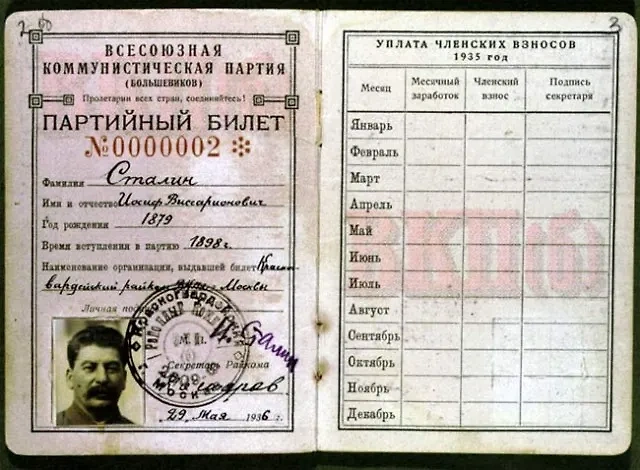 ВСЕСОЮЗНАЯ
КОММУНИСТИЧЕСКАЯ ПАРТИЯ
(БОЛЬШЕВИКОВ)
Пролетарии всех стран, соединяйтесь!
ПАРТИЙНЫЙ БИЛЕТ
№0000002
Фамилия Сталин
Имя и отчество Иосиф Виссарионович
Год рождения 1879
Время вступления в партию 1898 г.
Наименование организации, выдавшей билет Красно
вардейский райком г. Москвы
Личная
И. Сталин
М. П.
Секретарь Райкома
МОСКВА
29 Мая 1936 г.
3
УПЛАТА ЧЛЕНСКИХ ВЗНОСОВ
1935 год
Месяц Месячный заработок Членский взнос Подпись секретаря
Январь
Февраль
Март
Апрель
Май
Июнь
Июль
Август
Сентябрь
Октябрь
Ноябрь
Декабрь
ВКП(б)